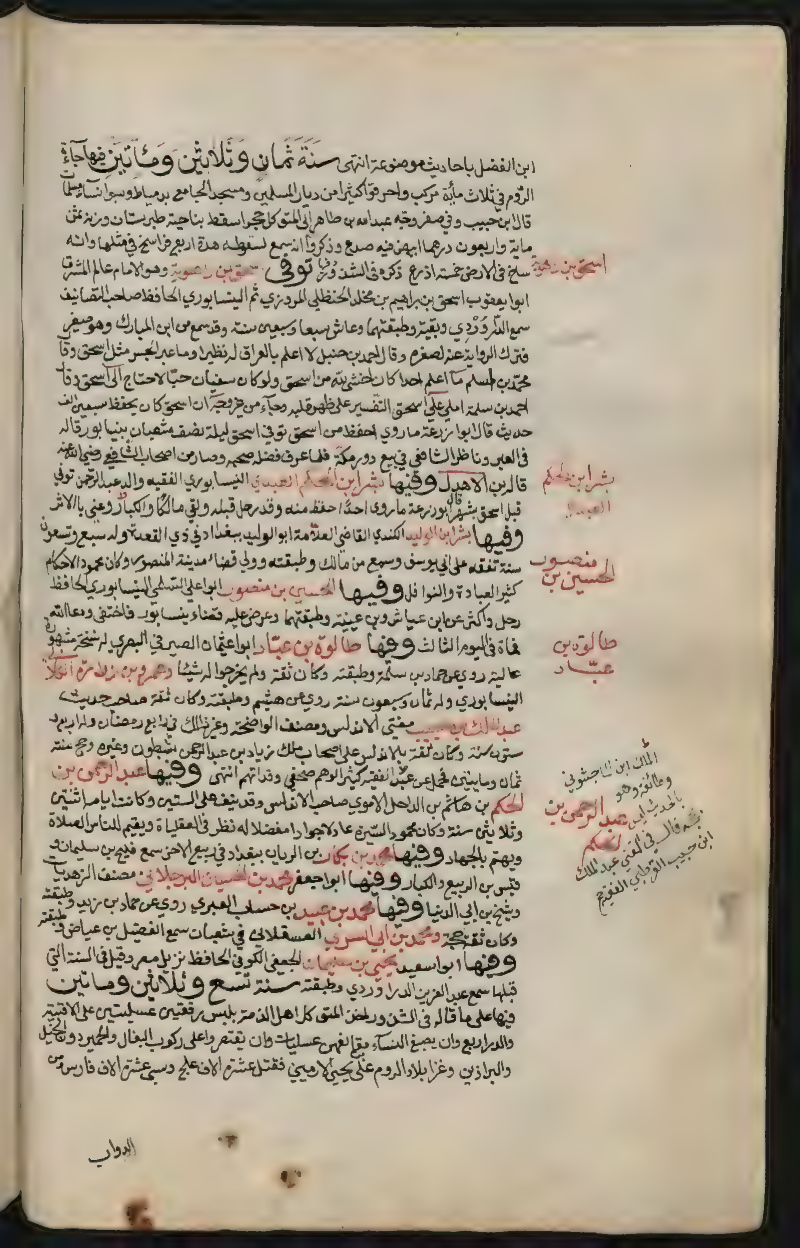 ابن الفضل باحاديث موضوعة انتهى سنة ثمان وثلاثين ومأتين فيها جاءة
الروم في ثلاث مأية مركب واحرقوا كثيرا من ديار المسلمين ومسجد الجامع بدمياط وسبوا نساء مسلمات
قال ابن حبيب وفي صفر وجه عبد الله بن طاهر الى المتوكل حجرا سقط بناحية طبرستان وزنه ثمن
ماية واربعون درهما ابيض فيه صدع وذكروا انه سمع لسقوطه هدة اربع فراسخ في مثلها وانه
ساخ في الارض خمسة اذرع ذكره في الشذور وفيها توفى اسحق بن راهوية وهو الامام عالم المشرق
ابو يعقوب اسحق بن ابراهيم بن مخلد الحنظلي المروزي ثم النيسابوري الحافظ صاحب التصانيف
سمع الدَّرَوَرْدي وبقية وطبقتهما وعاش سبعا وسبعين سنة وقد سمع من ابن المبارك وهو صغير
فترك الرواية عنه لصغره وقال احمد بن حنبل لا اعلم بالعراق له نظيرا وما عبر الجسر مثل اسحق وقا
محمد بن اسلم ما اعلم احدا كان اخشى لله من اسحق ولو كان سفيان حيا لاحتاج الى اسحق وقا
احمد بن سلمة املى علي اسحق التفسير على ظهر قلبه وجاء من غير وجه ان اسحق كان يحفظ سبعين الف
حديث قال ابو زرعة ما روي احفظ من اسحق توفي اسحق ليلة نصف شعبان بنيسابور قاله
في العبر وناظر الشافعي في بيع دور مكة فلما عرف فضله صحبه وصار من اصحاب الشافعي رضي الله عنه
قاله ابن الاهدل وفيها بشر ابن الحكم العبدي النيسابوري الفقيه والد عبد الرحمن توفي
قبل اسحق بشهر قال ابو زرعة ما روى احدا احفظ منه وقد رحل قبله ولقي مالكا والكبار وعني بالاثر
وفيها بشر ابن الوليد الكندي القاضي العلامة ابو الوليد ببغداد في ذي القعدة وله سبع وتسعون
سنة تفقه على ابي يوسف وسمع من مالك وطبقته وولي قضاء مدينة المنصور وكان محمود الاحكام
كثير العبادة والنوافل وفيها الحسين بن منصور ابو علي السلمي النيسابوري الحافظ
رحل واكثر عن ابن عياش وبن عيينة وطبقتهما وعرض عليه قضاء نيسابور فاختفى ودعا الله
فمات في اليوم الثالث وفيها طالوة بن عبّاد ابو عثمان الصيرفي البصري له نسخة مشهورة
عالية روى عن حماد بن سلمة وطبقته وكان ثقة ولم يخرجوا له شيئا وعمرو بن زرارة الكلابي
النيسابوري وله ثمان وسبعون سنة روى عن هشيم وطبقته وكان ثقة صاحب حديث
عبد الملك بن حبيب مفتي الاندلس ومصنف الواضحة وغير ذلك في رابع رمضان وله اربع و
ستون سنة وكان تفقه بالاندلس على اصحاب ملك زياد بن عبد الرحمن شبطون وغيره وحج سنة
ثمان ومايتين فحمل عن عبد الملك
الفقيه كثير الوهم صحفي وقد اتهم انتهى وفيها عبد الرحمن بن
الحكم بن هشام بن الداخل الاموي صاحب الاندلس وقد نيف على الستين وكانت ايامه اثنتين
وثلاثين سنة وكان محمود السيرة عادلا جوادا مفضلا له نظر في العقليات ويقيم للناس الصلاة
ويهتم بالجهاد وفيها محمد بن بكار بن الريان ببغداد في ربيع الاخر سمع فليح بن سليمان و
قيس بن الربيع والكبار وفيها ابو جعفر محمد بن الحسين البرجلاني مصنف الزهديات
وشيخ بن ابي الدنيا وفيها محمد بن عبيد بن حساب الغبري روى عن حماد بن زيد وطبقته
وكان ثقة حجة ومحمد بن ابي السري العسقلاني في شعبان سمع الفضيل بن عياض وطبقته
وفيها ابو سعيد يحيى بن سليمان الجعفي الكوفي الحافظ نزيل مصر وقيل في السنة التي
قبلها سمع عبد العزيز الدراوردي وطبقته سنة تسع وثلاثين وماتين
فيها على ما قاله في الشذور اخذ المتوكل اهل الذمة بلبس رقعتين عسليتين على الاقبية
والدراريع وان يصبغ النساء مقانعهن عسليات وان يقتصروا على ركوب البغال والحمير دون الخيل
والبراذين وغزا بلاد الروم علي بن يحيى الارميني فقتل عشرة الاف علج وسبى عشرة الاف فارس من
الدواب
اسحق بن راهوية
بشر ابن الحكم
العبدي
منصور
الحسين بن
طالوة بن
عبّاد
الملك ابن الماجشوني
عبد الرحمن بن
الحكم
قال في المغني عبد الملك
ابن حبيب القرطبي الفقيه